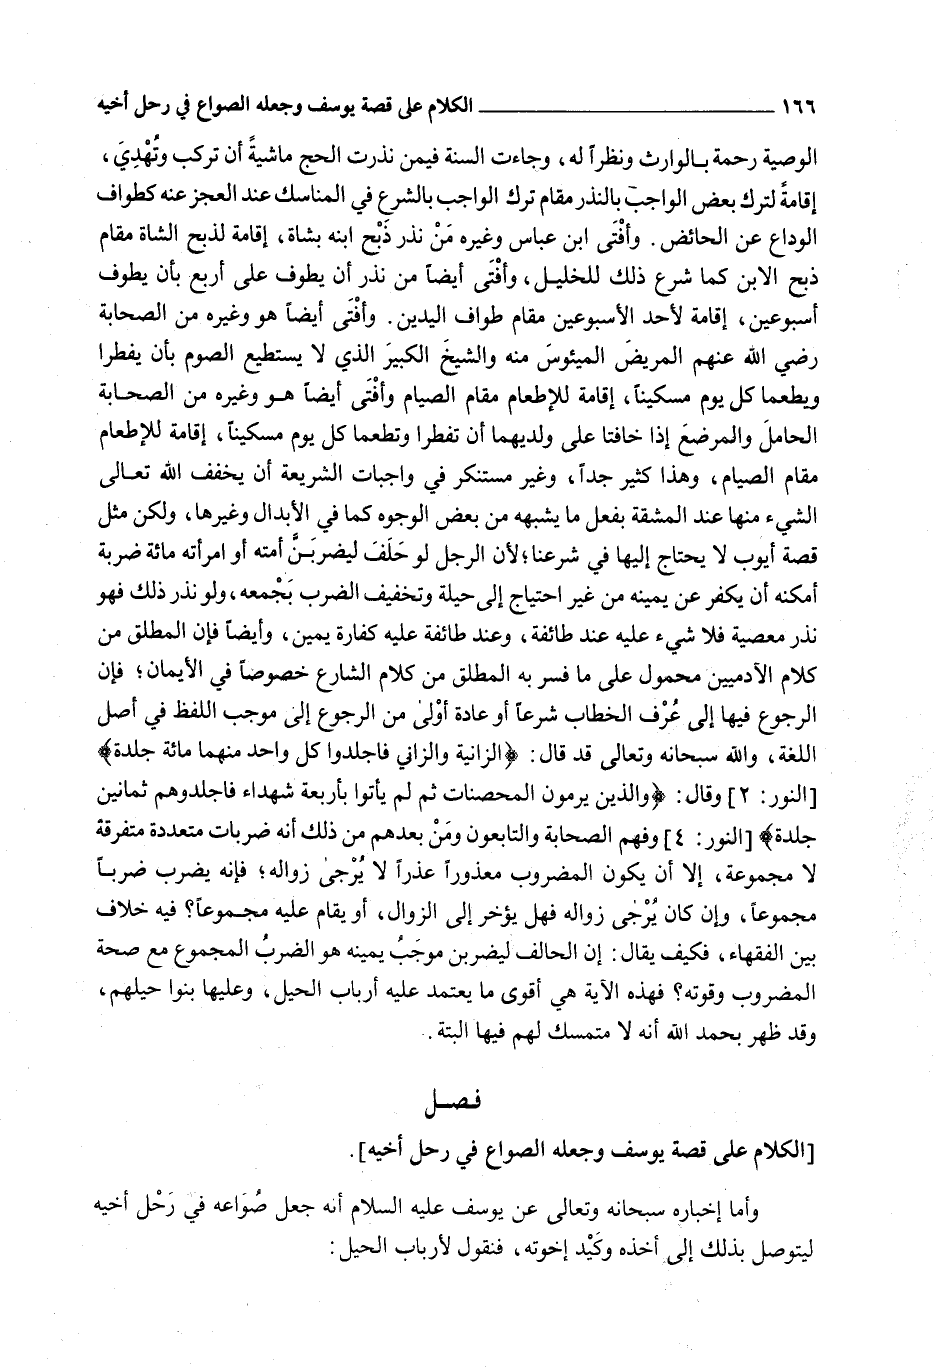 ١٦٦ ــــــــــــــــــــــــــــــــ الكلام على قصة يوسف وجعله الصواع في رحل أخيه
الوصية رحمة بالوارث ونظراً له، وجاءت السنة فيمن نذرت الحج ماشيةً أن تركب وتُهْدِيَ،
إقامةً لترك بعض الواجب بالنذر مقام ترك الواجب بالشرع في المناسك عند العجز عنه كطواف
الوداع عن الحائض. وأفْتَى ابن عباس وغيره مَنْ نذر ذَبْح ابنه بشاة، إقامة لذبح الشاة مقام
ذبح الابن كما شرع ذلك للخليل، وأفْتَى أيضاً من نذر أن يطوف على أربع بأن يطوف
أسبوعين، إقامة لأحد الأسبوعين مقام طواف اليدين. وأفْتَى أيضاً هو وغيره من الصحابة
رضي الله عنهم المريضَ الميئوسَ منه والشيخَ الكبيرَ الذي لا يستطيع الصوم بأن يفطرا
ويطعما كل يوم مسكيناً، إقامة للإطعام مقام الصيام وأفْتَى أيضاً هو وغيره من الصحابة
الحاملَ والمرضعَ إذا خافتا على ولديهما أن تفطرا وتطعما كل يوم مسكيناً، إقامة للإطعام
مقام الصيام، وهذا كثير جداً، وغير مستنكر في واجبات الشريعة أن يخفف الله تعالى
الشيء منها عند المشقة بفعل ما يشبهه من بعض الوجوه كما في الأبدال وغيرها، ولكن مثل
قصة أيوب لا يحتاج إليها في شرعنا؛ لأن الرجل لو حَلَفَ ليضربَنَّ أمته أو امرأته مائة ضربة
أمكنه أن يكفر عن يمينه من غير احتياج إلى حيلة وتخفيف الضرب بَجْمعه، ولو نذر ذلك فهو
نذر معصية فلا شيء عليه عند طائفة، وعند طائفة عليه كفارة يمين، وأيضاً فإن المطلق من
كلام الأدميين محمول على ما فسر به المطلق من كلام الشارع خصوصاً في الأيمان؛ فإن
الرجوع فيها إلى عُرْف الخطاب شرعاً أو عادة أوْلىٰ من الرجوع إلى موجب اللفظ في أصل
اللغة، والله سبحانه وتعالى قد قال: ﴿الزانية والزاني فاجلدوا كل واحد منهما مائة جلدة﴾
[النور: ٢] وقال: ﴿والذين يرمون المحصنات ثم لم يأتوا بأربعة شهداء فاجلدوهم ثمانين
جلدة﴾ [النور: ٤] وفهم الصحابة والتابعون ومَنْ بعدهم من ذلك أنه ضربات متعددة متفرقة
لا مجموعة، إلا أن يكون المضروب معذوراً عذراً لا يُرْجىٰ زواله؛ فإنه يضرب ضرباً
مجموعاً، وإن كان يُرْجَى زواله فهل يؤخر إلى الزوال، أو يقام عليه مجموعاً؟ فيه خلاف
بين الفقهاء، فكيف يقال: إن الحالف ليضربن موجَبُ يمينه هو الضربُ المجموع مع صحة
المضروب وقوته؟ فهذه الآية هي أقوى ما يعتمد عليه أرباب الحيل، وعليها بنوا حيلهم،
وقد ظهر بحمد الله أنه لا متمسك لهم فيها البتة.
فصل
[الكلام على قصة يوسف وجعله الصواع في رحل أخيه].
وأما إخباره سبحانه وتعالى عن يوسف عليه السلام أنه جعل صُوَاعه في رَحْل أخيه
ليتوصل بذلك إلى أخذه وكَيْد إخوته، فنقول لأرباب الحيل: